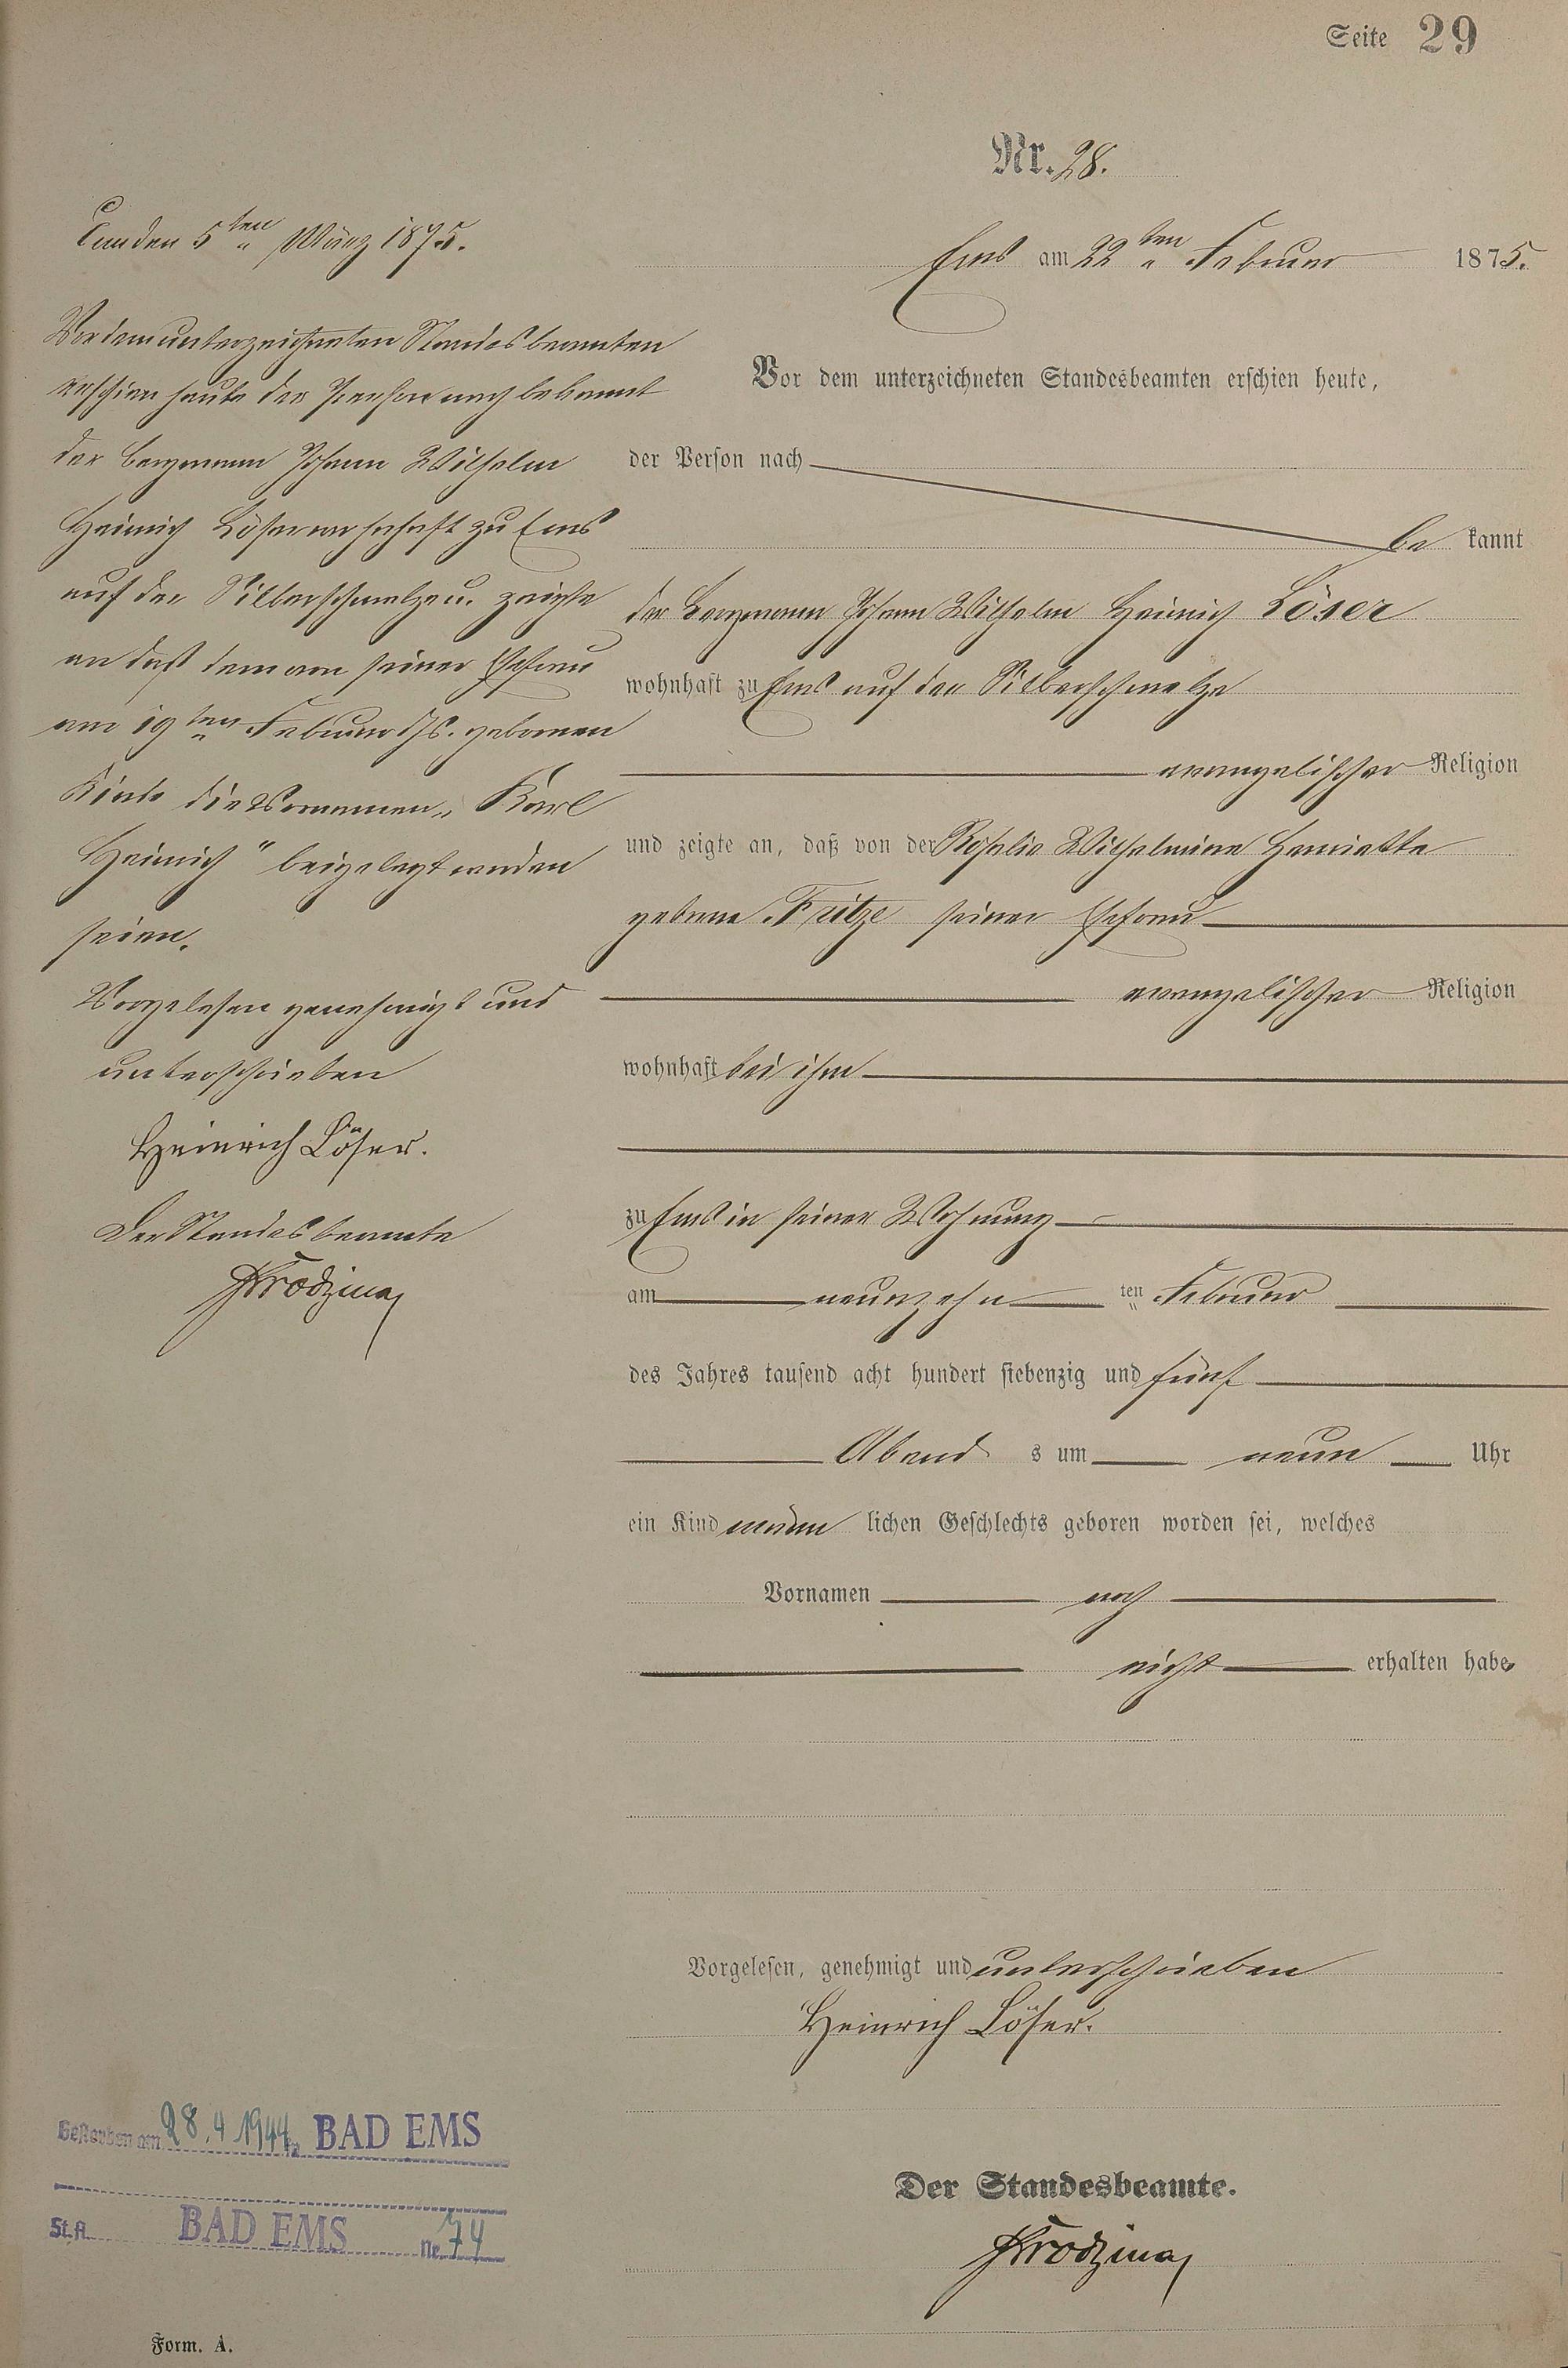 Seite 29
Nr. 28.
Ems am 22ten Februar 1875.
Vor dem unterzeichneten Standesbeamten erschien heute,
der Person nach
be kannt
der Bergmann Johann Wilhelm Heinrich Löser
wohnhaft zu Ems auf der Silberschmelze
evangelischer Religion
und zeigte an, daß von der Rosalie Wilhelmine Henriette
geborne Fritze seiner Ehefrau
evangelischer Religion
wohnhaft bei ihm
zu Ems in seiner Wohnung
am neunzehn ten Februar
des Jahres tausend acht hundert siebenzig und fünf
Abend s um neun Uhr
ein Kind männ lichen Geschlechts geboren worden sei, welches
Vornamen noch
nicht erhalten habe
Vorgelesen, genehmigt und unterschrieben
Heinrich Löser.
Der Standesbeamte.
den 5ten März 1875.
Vor dem unterzeichneten Standesbeamten
erschien heute der Person nach bekannt
der Bergmann Johann Wilhelm
Heinrich Löser wohnhaft zu Ems
auf der Silberschmelze u. zeigte
an daß dem von seiner Ehefrau
am 19ten Februar d Js. geborenen
Kinde die Vornamen „Karl
Heinrich" beigelegt worden
seien.
Vorgelesen genehmigt und
unterschrieben
Heinrich Löser.
Der Standesbeamte
Gestorben am 28.4.1944 BAD EMS
St.A. BAD EMS Nr. 74
Form. A.